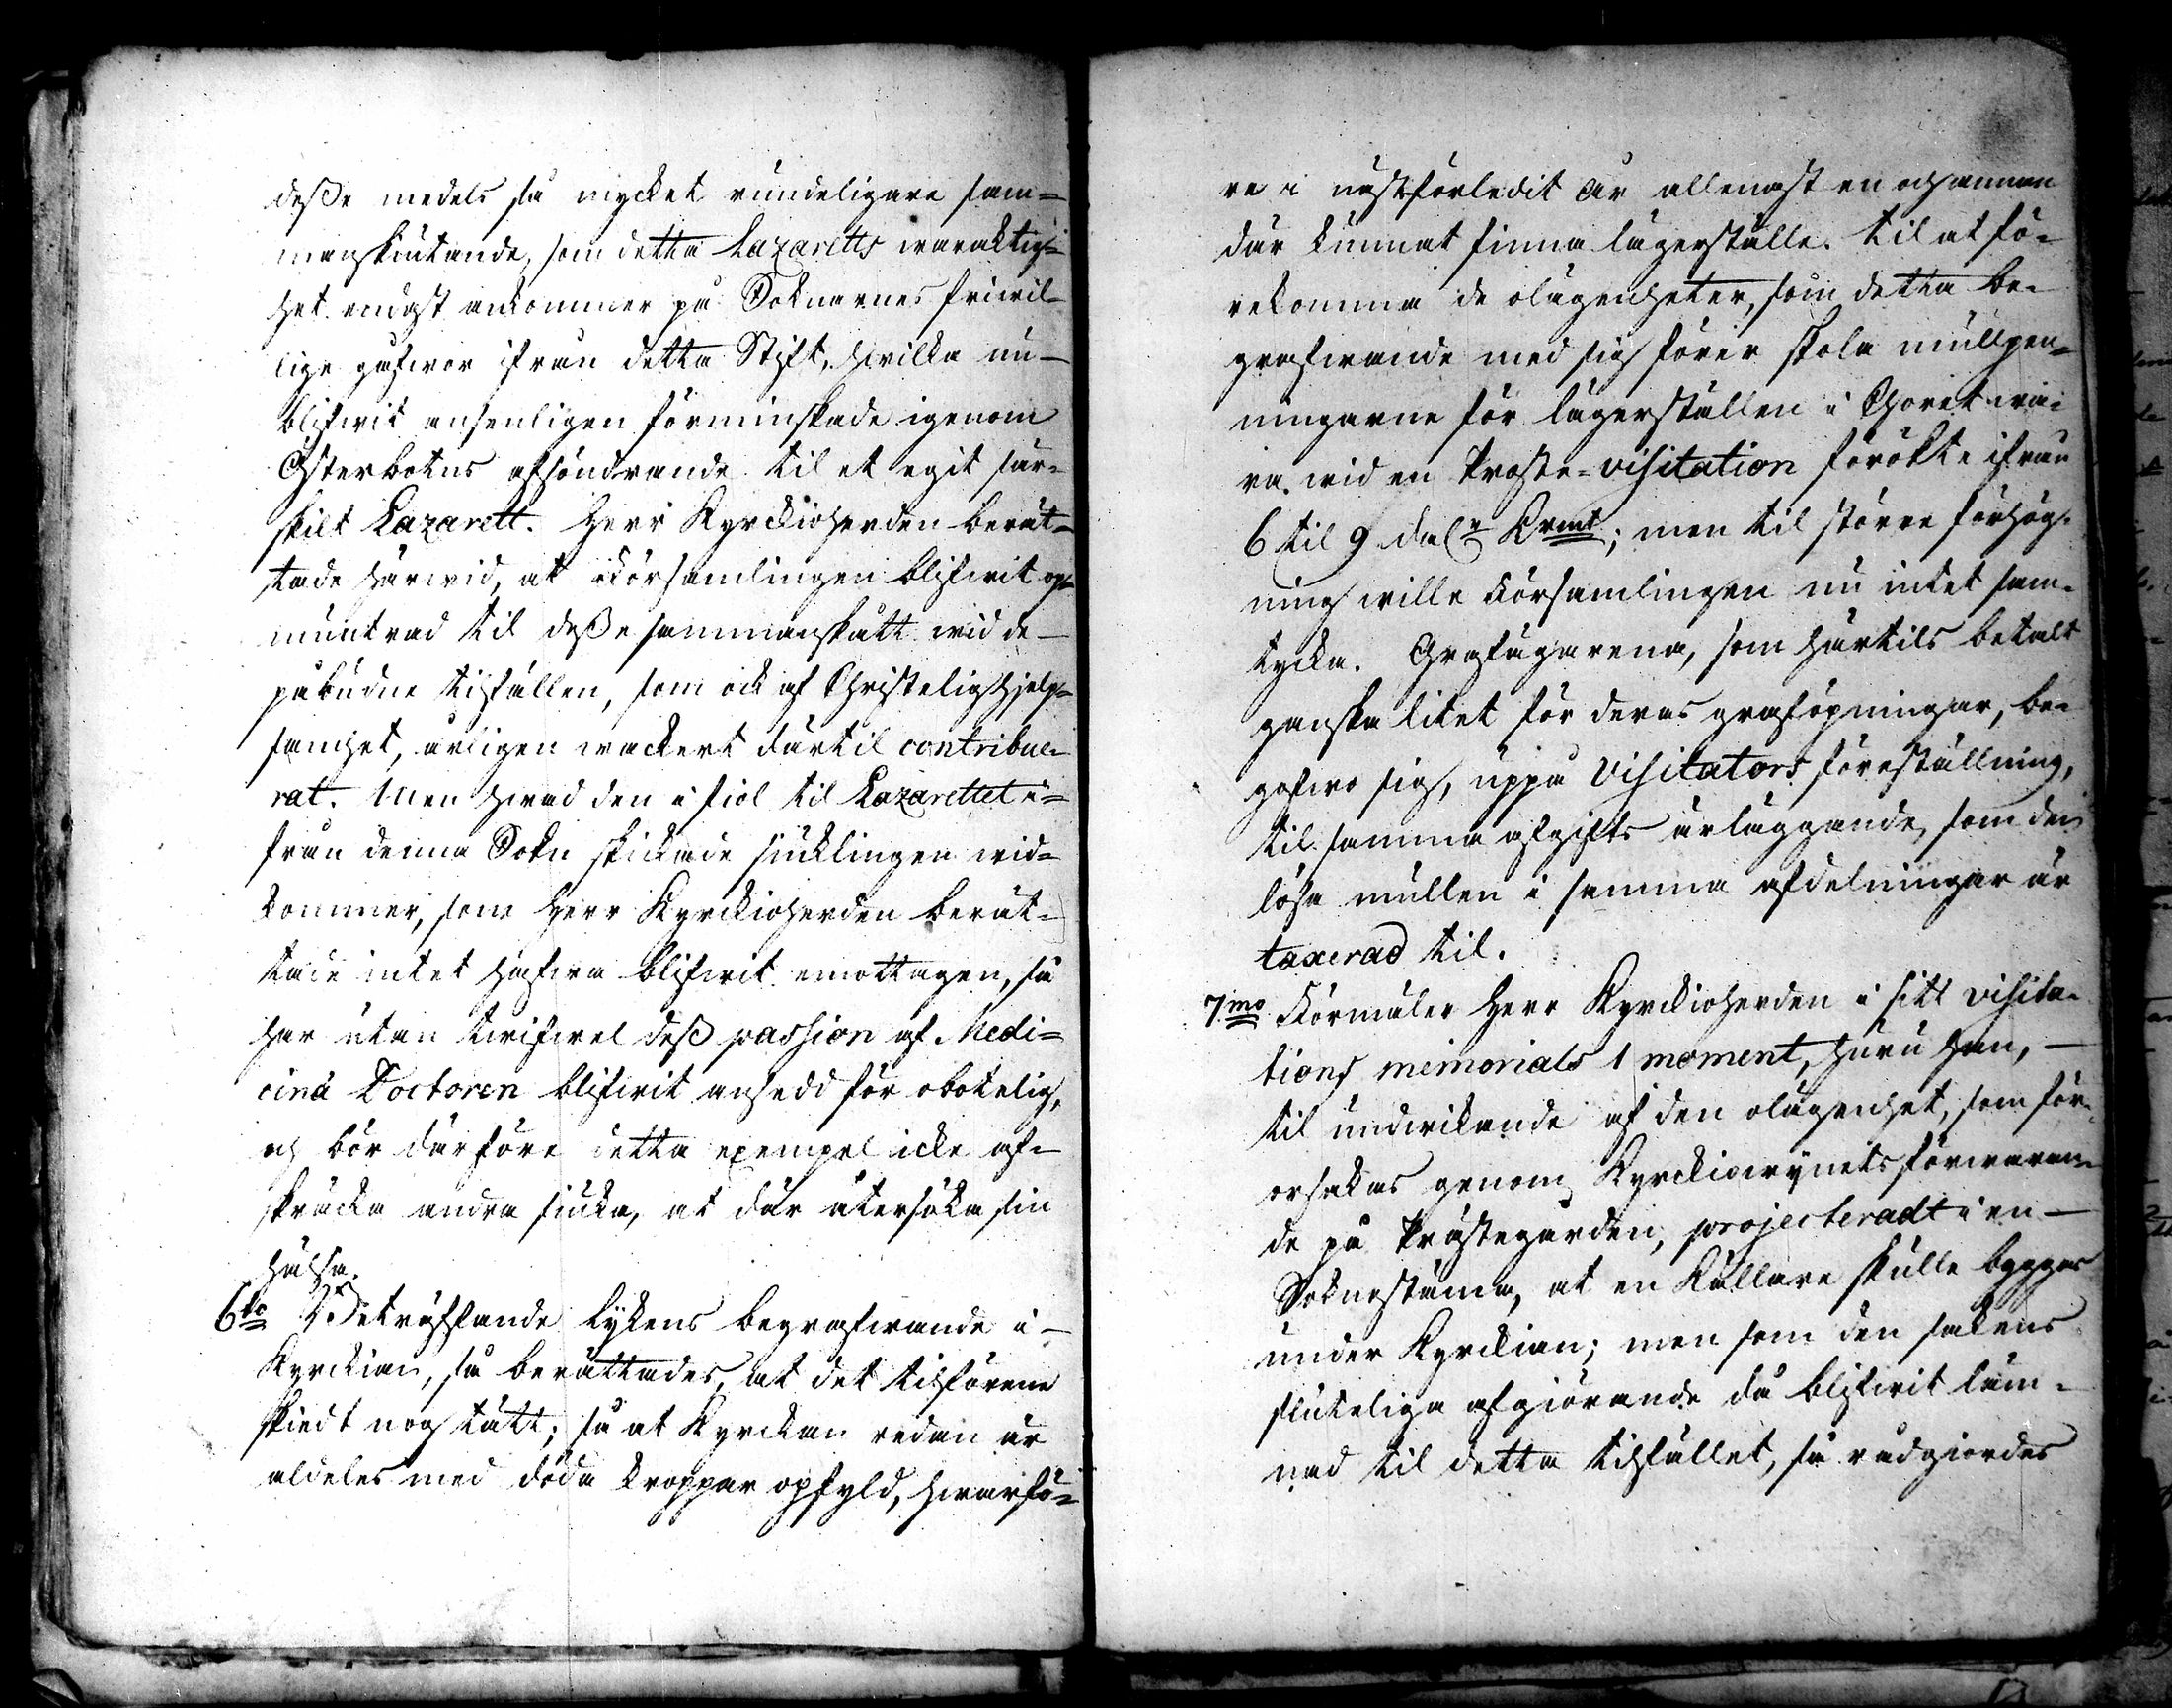 deße medels så mycket rundeligare sam=
manskiutande, som detta Lazaretts waraktig=
het endast ankommer på Soknarnes friwil=
lige gåfwor ifrån detta Stift, hwilka nu
blifwit ansenligen förminskade igenom
Österbotns afsöndrande til et egit sär=
skilt Lazarett. Herr Kyrckioherden berät=
tade härwid, at Församlingen blifwit op=
muntrad til deße sammanskått wid de
påbudne tilfällen, som ock af Christelig hjelp=
samhet, årligen wackert därtil contribue=
rat. Men hwad den i fiol til Lazarettet i=
från denna Sokn skickade siuklingen wid=
kommer, som Herr Kyrckioherden berät=
tade intet hafwa blifwit emottagen, så
har utan twifwel deß passion af Medi=
cinæ Doctoren blifwit ansedd för obotelig,
och bör därföre detta exempel icke af=
skräcka andra siuka, at där återsöka sin
hälsa.
6to Beträffande Lykens begrafwande i
Kyrckian, så berättades, at det tilförene
skiedt nog tätt; så at Kyrckan redan är
aldeles med döda kroppar opfyld, hwarfö=
re i nästförledit år allenast en och annan
där kunnat finna lägerställe. Til at fö=
rekomma de olägenheter, som detta be=
grafwande med sig förer skola mullpen=
ningarne för lägerställen i Choret wa=
ra wid en Proste=visitation förökte ifrån
6 til 9 dalr Kmt; men til större förhög=
ning wille Församlingen nu intet sam=
tycka. Grafägarena, som härtils betalt
ganska litet för deras graföpningar, be=
gåfwo sig, uppå Visitators föreställning,
til samma afgifts ärläggande, som den
lösa mullen i samma afdelningar är
taxerad til.
7mo Förmäler Herr Kyrckioherden i sitt Visita=
tions memorials 1 moment, huru han,
til undwikande af den olägenhet, som för=
orsakas genom Kyrckiowynets förwaran=
de på Prästegården, projecteradt i en
Soknestämma, at en Källare skulle byggas
under Kyrckian; men som den sakens
sluteliga afgiörande då blifwit läm=
nad til detta tilfället, så rådgiordes